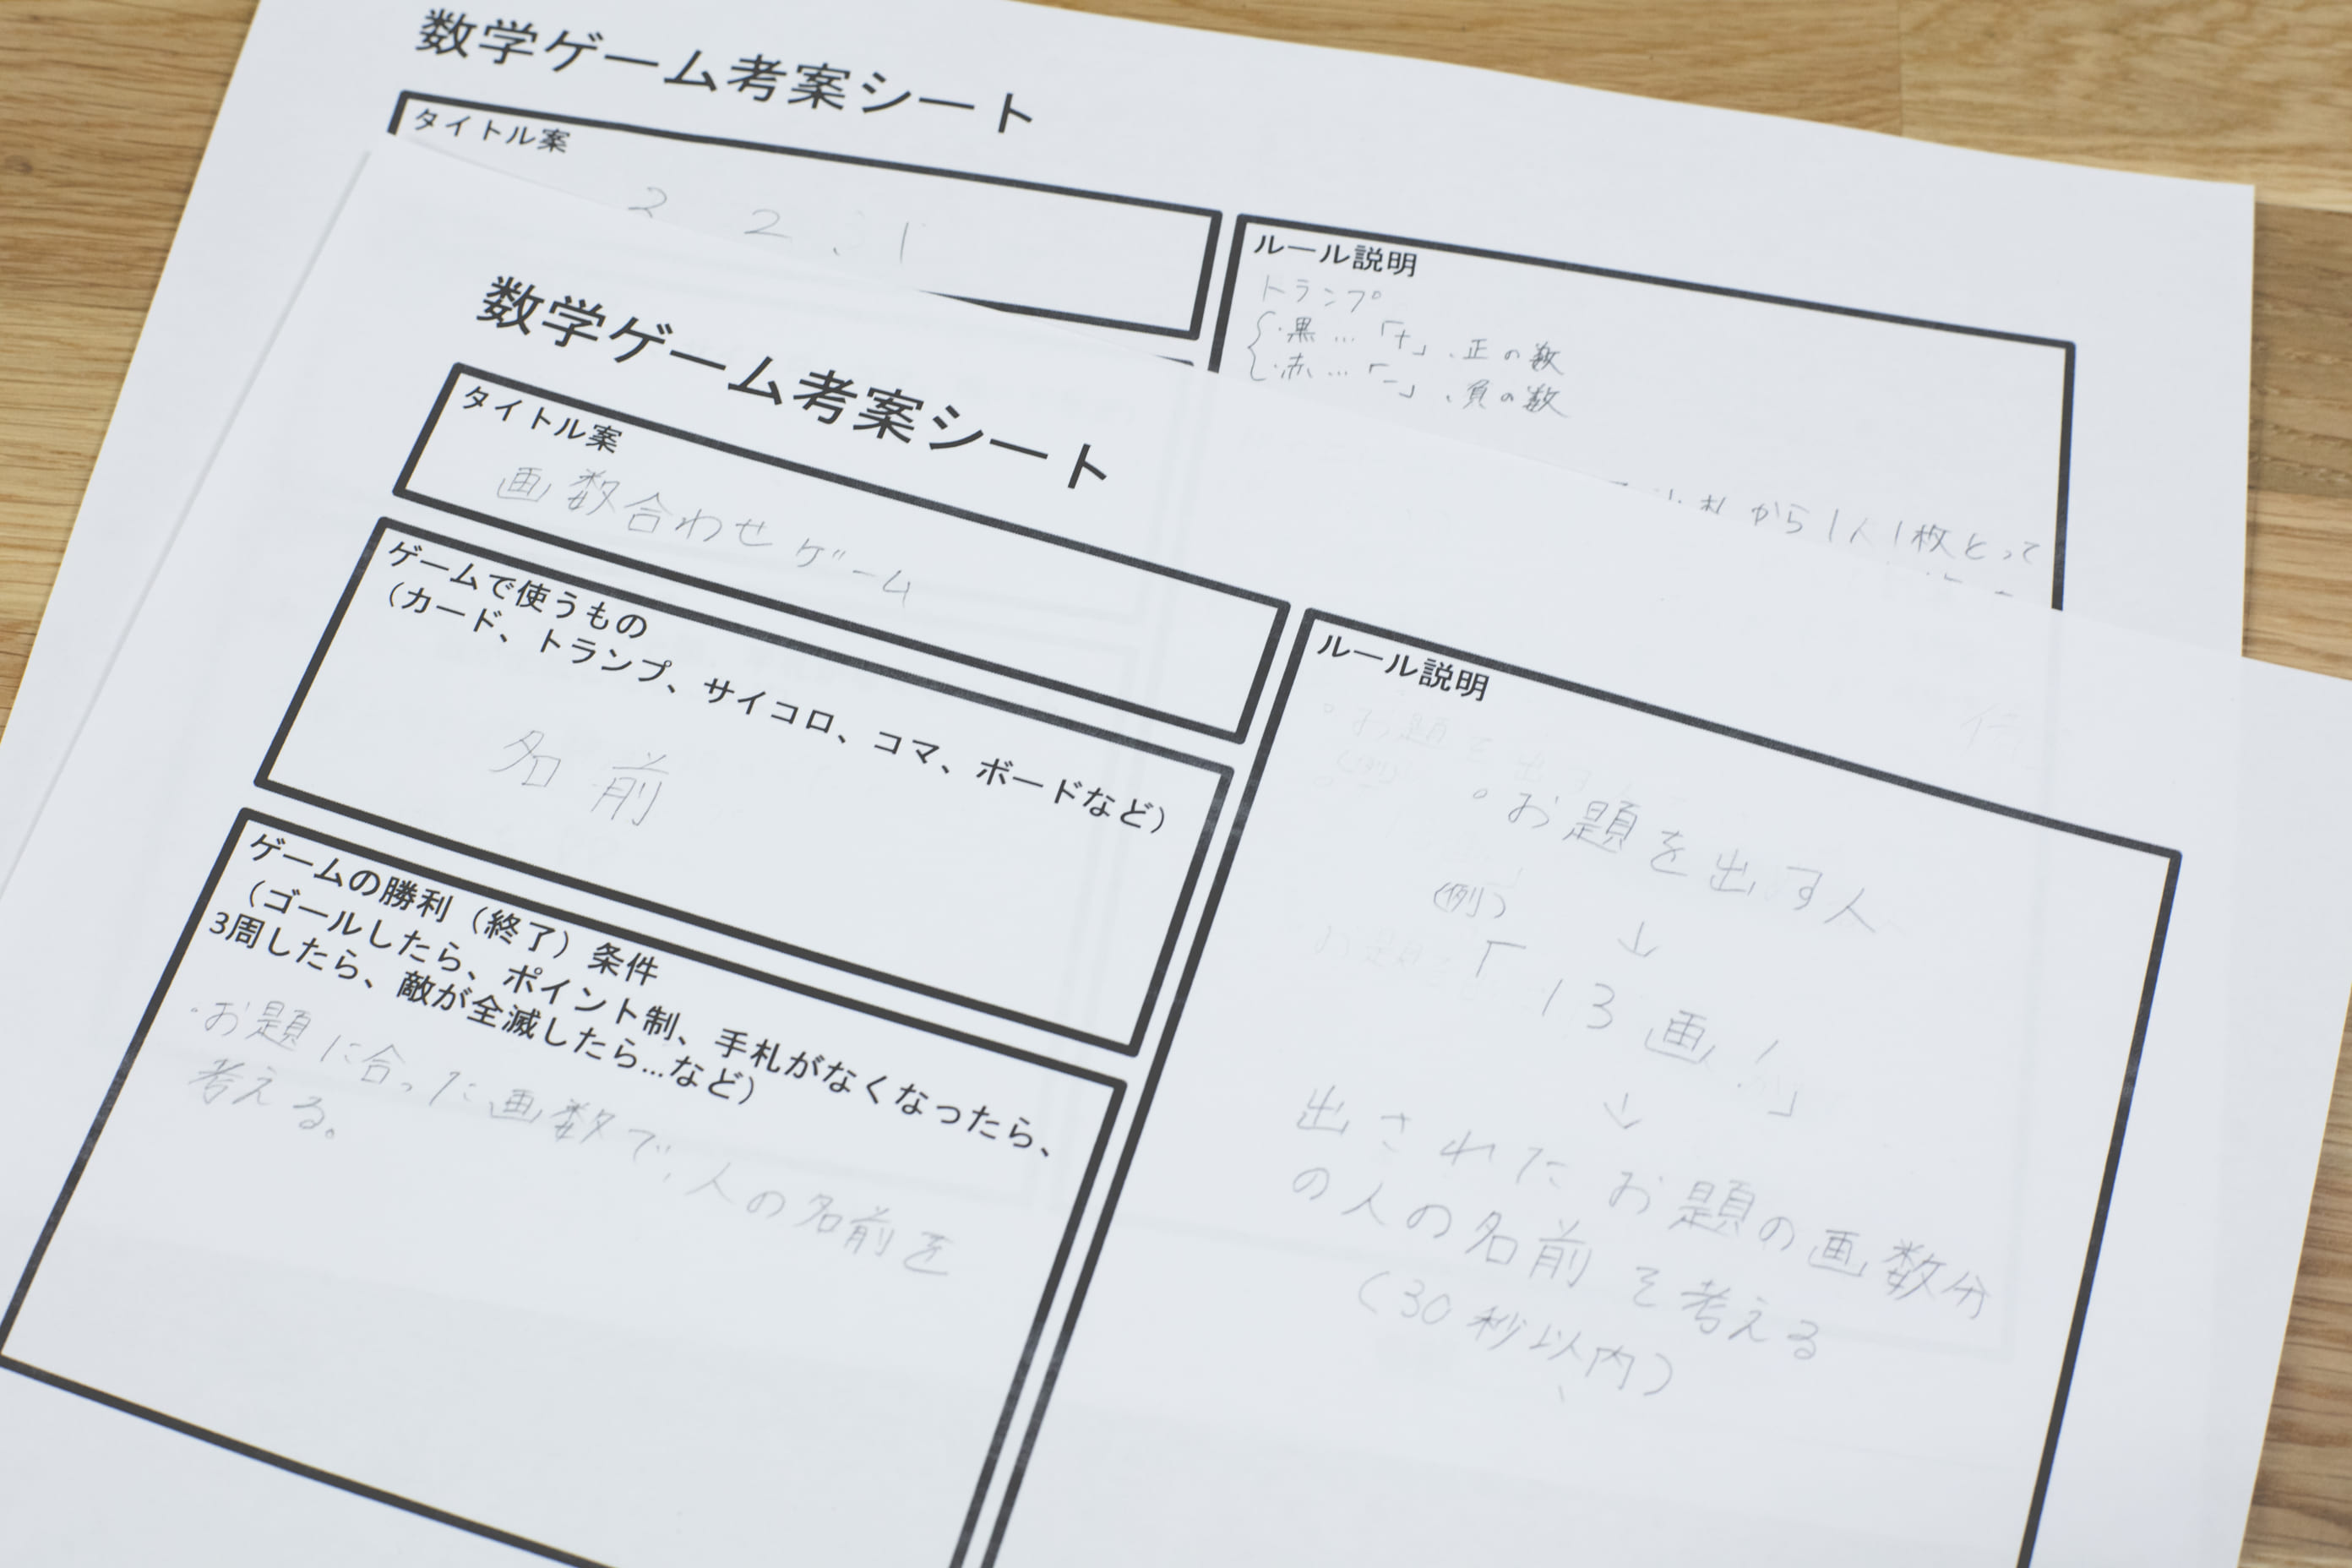 数学ゲーム考案シート
タイトル案
ルール説明
トランプ
・黒…「+」、正の数
・赤…「-」、負の数
札から1人1枚とって
数学ゲーム考案シート
タイトル案
画数合わせゲーム
ゲームで使うもの
（カード、トランプ、サイコロ、コマ、ボードなど）
名前
ゲームの勝利（終了）条件
（ゴールしたら、ポイント制、手札がなくなったら、
3周したら、敵が全滅したら…など）
・お題に合った画数で、人の名前を
考える。
ルール説明
。お題を出す人
(例) ↓
「13画！」
↓
出されたお題の画数分
の人の名前を考える
(30秒以内)